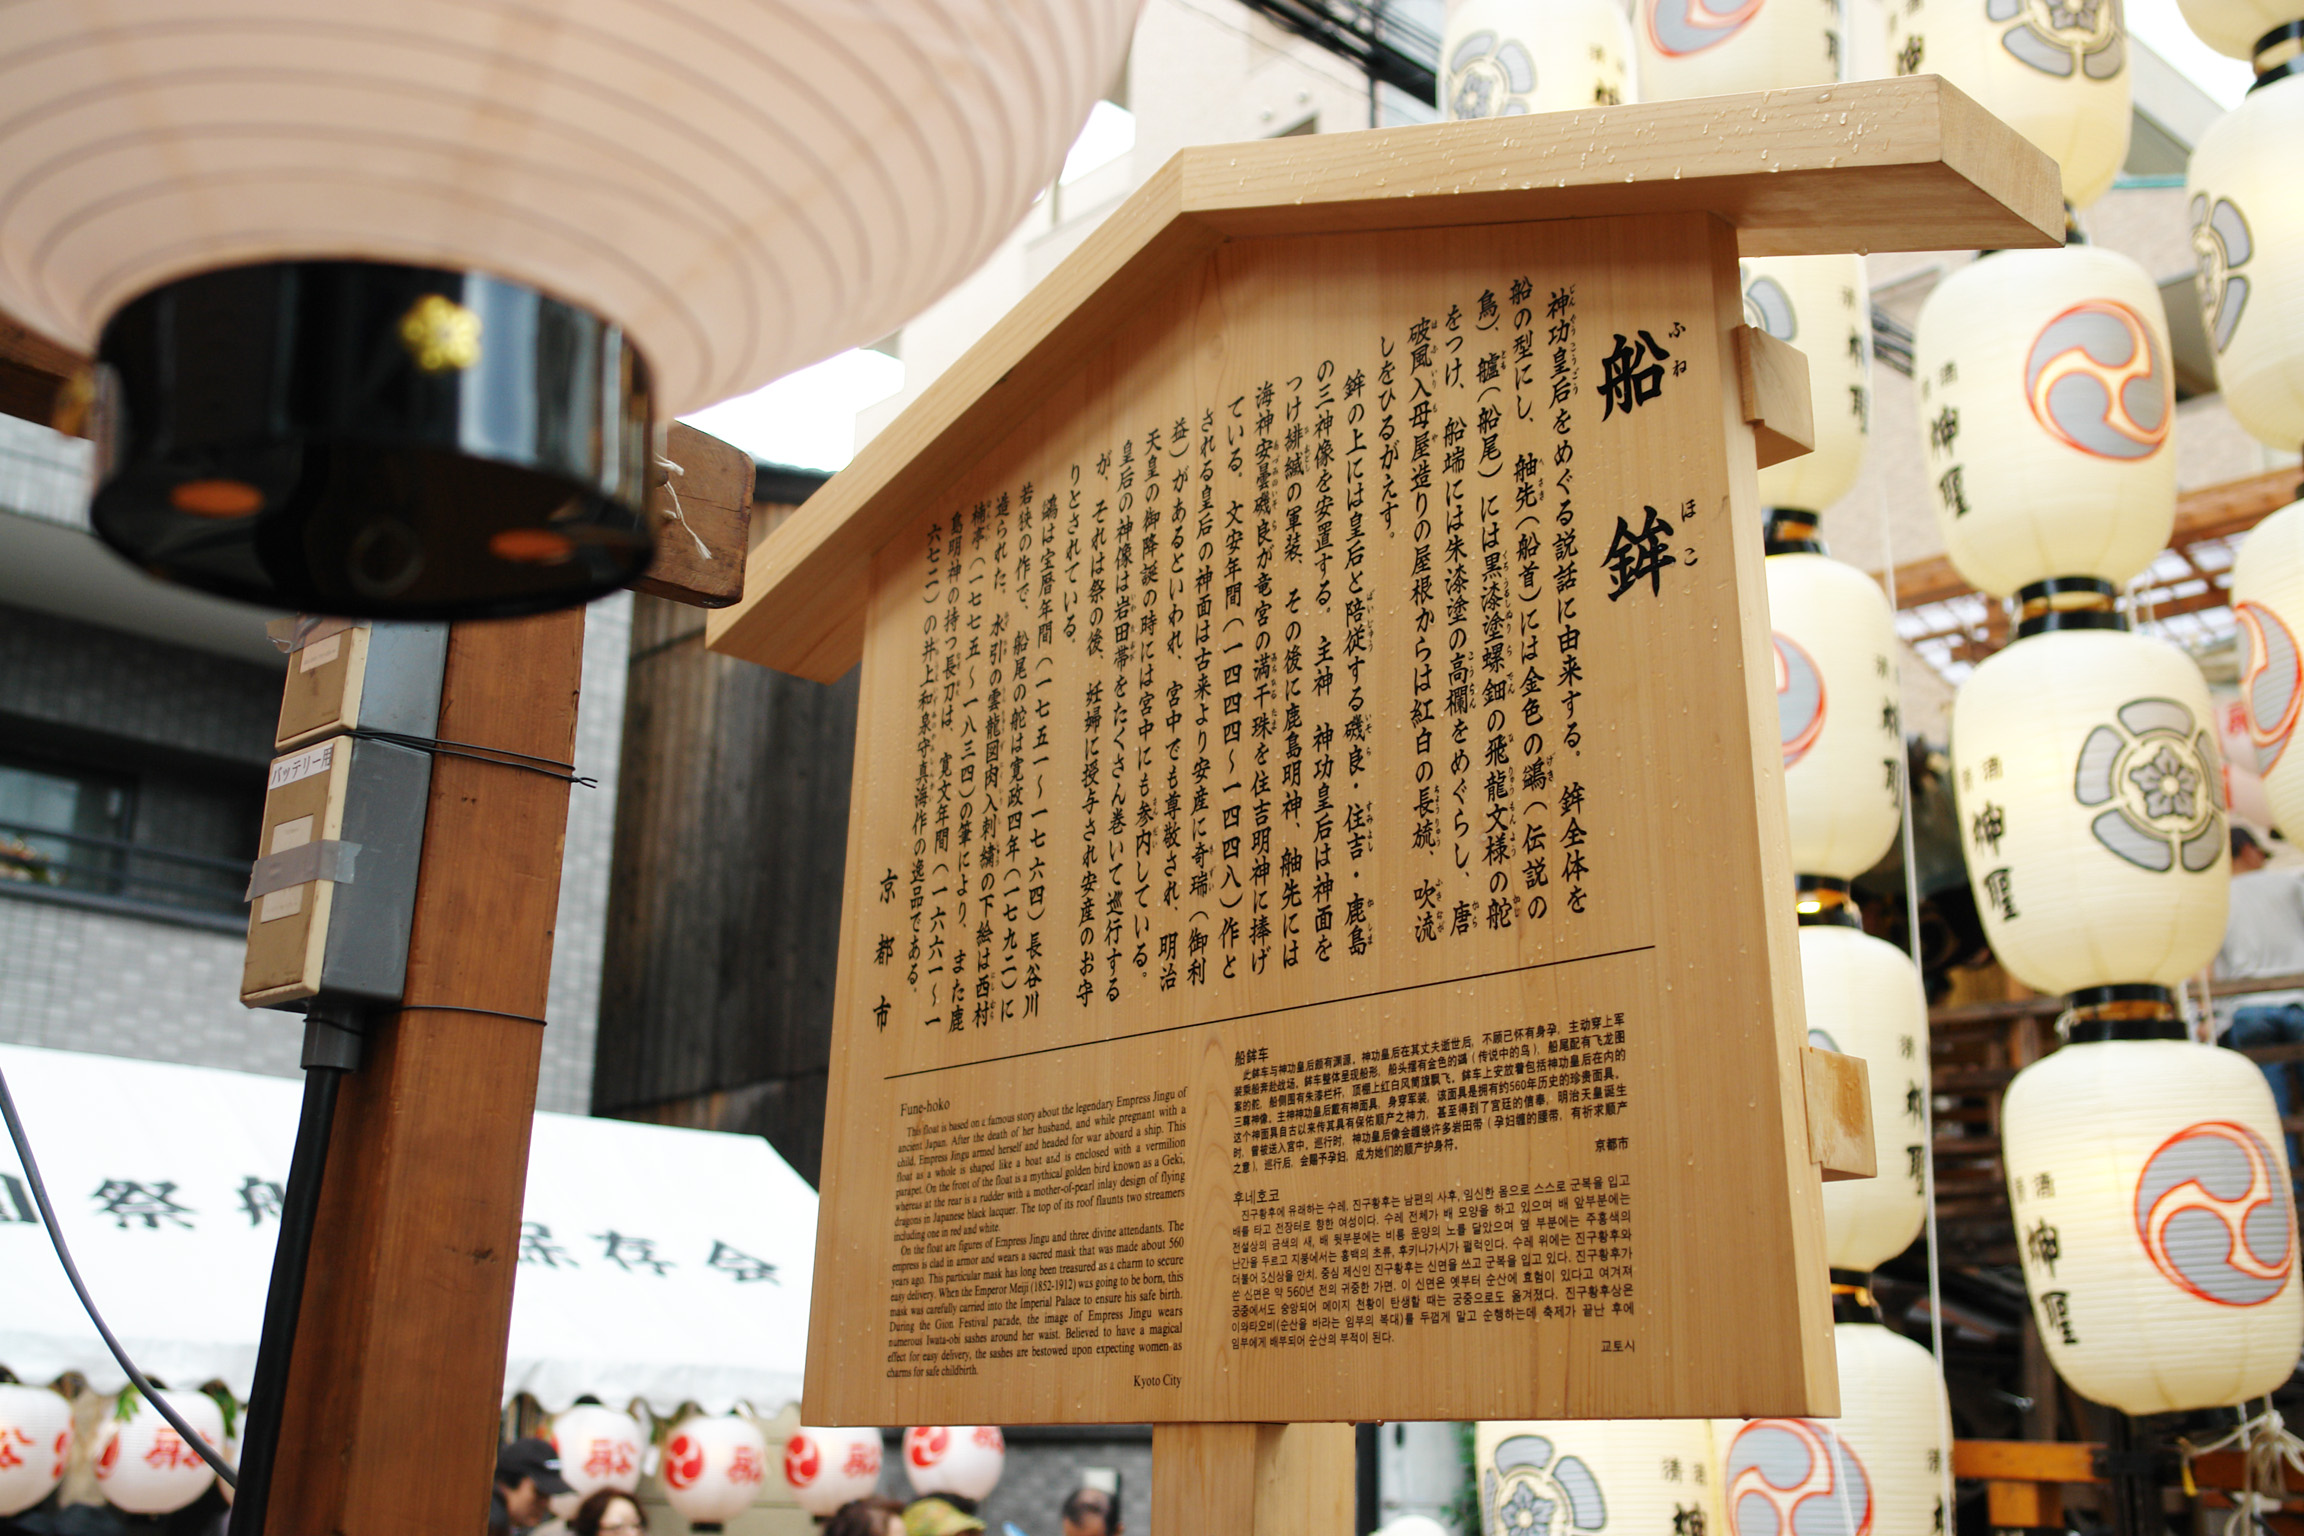 船鉾
ふね ほこ
神功皇后をめぐる説話に由来する。鉾全体を
船の型にし、舳先(船首)には金色の鷁(伝説の
鳥)、艫(船尾)には黒漆塗螺鈿の飛龍文様の舵
をつけ、船端には朱漆塗の高欄をめぐらし、唐
破風入母屋造りの屋根からは紅白の長旒、吹流
しをひるがえす。
鉾の上には皇后と陪従する磯良・住吉・鹿島
の三神像を安置する。主神 神功皇后は神面を
つけ緋縅の軍装、その後に鹿島明神、舳先には
海神安曇磯良が竜宮の満干珠を住吉明神に捧げ
ている。文安年間(一四四四〜一四四八)作と
される皇后の神面は古来より安産に奇瑞(御利
益)があるといわれ、宮中でも尊敬され、明治
天皇の御降誕の時には宮中にも参内している。
皇后の神像は岩田帯をたくさん巻いて巡行する
が、それは祭の後、妊婦に授与され安産のお守
りとされている。
鷁は宝暦年間(一七五一〜一七六四)長谷川
若狭の作で、船尾の舵は寛政四年(一七九二)に
造られた。水引の雲龍図肉入刺繍の下絵は西村
楠亭(一七七五〜一八三四)の筆により、また鹿
島明神の持つ長刀は、寛文年間(一六六一〜一
六七二)の井上和泉守真海作の逸品である。
京都市
Fune-hoko
This float is based on a famous story about the legendary Empress Jingu of
ancient Japan. After the death of her husband, and while pregnant with a
child, Empress Jingu armed herself and headed for war aboard a ship. This
float as a whole is shaped like a boat and is enclosed with a vermilion
parapet. On the front of the float is a mythical golden bird known as a Geki,
whereas at the rear is a rudder with a mother-of-pearl inlay design of flying
dragons in Japanese black lacquer. The top of its roof flaunts two streamers
including one in red and white.
On the float are figures of Empress Jingu and three divine attendants. The
empress is clad in armor and wears a sacred mask that was made about 560
years ago. This particular mask has long been treasured as a charm to secure
easy delivery. When the Emperor Meiji (1852-1912) was going to be born, this
mask was carefully carried into the Imperial Palace to ensure his safe birth.
During the Gion Festival parade, the image of Empress Jingu wears
numerous Iwata-obi sashes around her waist. Believed to have a magical
effect for easy delivery, the sashes are bestowed upon expecting women as
charms for safe childbirth.
Kyoto City
船鉾车
此鉾车与神功皇后颇有渊源。神功皇后在其丈夫逝世后，不顾己怀有身孕，主动穿上军
装乘船奔赴战场。鉾车整体呈现船形，船头摆有金色的鷁（传说中的鸟），船尾配有飞龙图
案的舵，船侧围有朱漆栏杆，顶棚上红白风筒旗飘飞。鉾车上安放着包括神功皇后在内的
三尊神像。主神神功皇后戴有神面具，身穿军装，该面具是拥有约560年历史的珍贵面具。
这个神面具自古以来传其具有保佑顺产之神力，甚至得到了宫廷的信奉，明治天皇诞生
时，曾被送入宫中。巡行时，神功皇后像会缠绕许多岩田带（孕妇缠的腰带，有祈求顺产
之意），巡行后，会赐予孕妇，成为她们的顺产护身符。
京都市
후네호코
진구황후에 유래하는 수레. 진구황후는 남편의 사후, 임신한 몸으로 스스로 군복을 입고
배를 타고 전장터로 향한 여성이다. 수레 전체가 배 모양을 하고 있으며 배 앞부분에는
전설상의 금색의 새, 배 뒷부분에는 비룡 문양의 노를 달았으며 옆 부분에는 주홍색의
난간을 두르고 지붕에서는 홍백의 초류, 후키나가시가 펄럭인다. 수레 위에는 진구황후와
더불어 3신상을 안치. 중심 제신인 진구황후는 신면을 쓰고 군복을 입고 있다. 진구황후가
쓴 신면은 약 560년 전의 귀중한 가면. 이 신면은 옛부터 순산에 효험이 있다고 여겨져
궁중에서도 숭앙되어 메이지 천황이 탄생할 때는 궁중으로도 옮겨졌다. 진구황후상은
이와타오비(순산을 바라는 임부의 복대)를 두껍게 말고 순행하는데 축제가 끝난 후에
임부에게 배부되어 순산의 부적이 된다.
교토시
バッテリー用
祭船
保存会